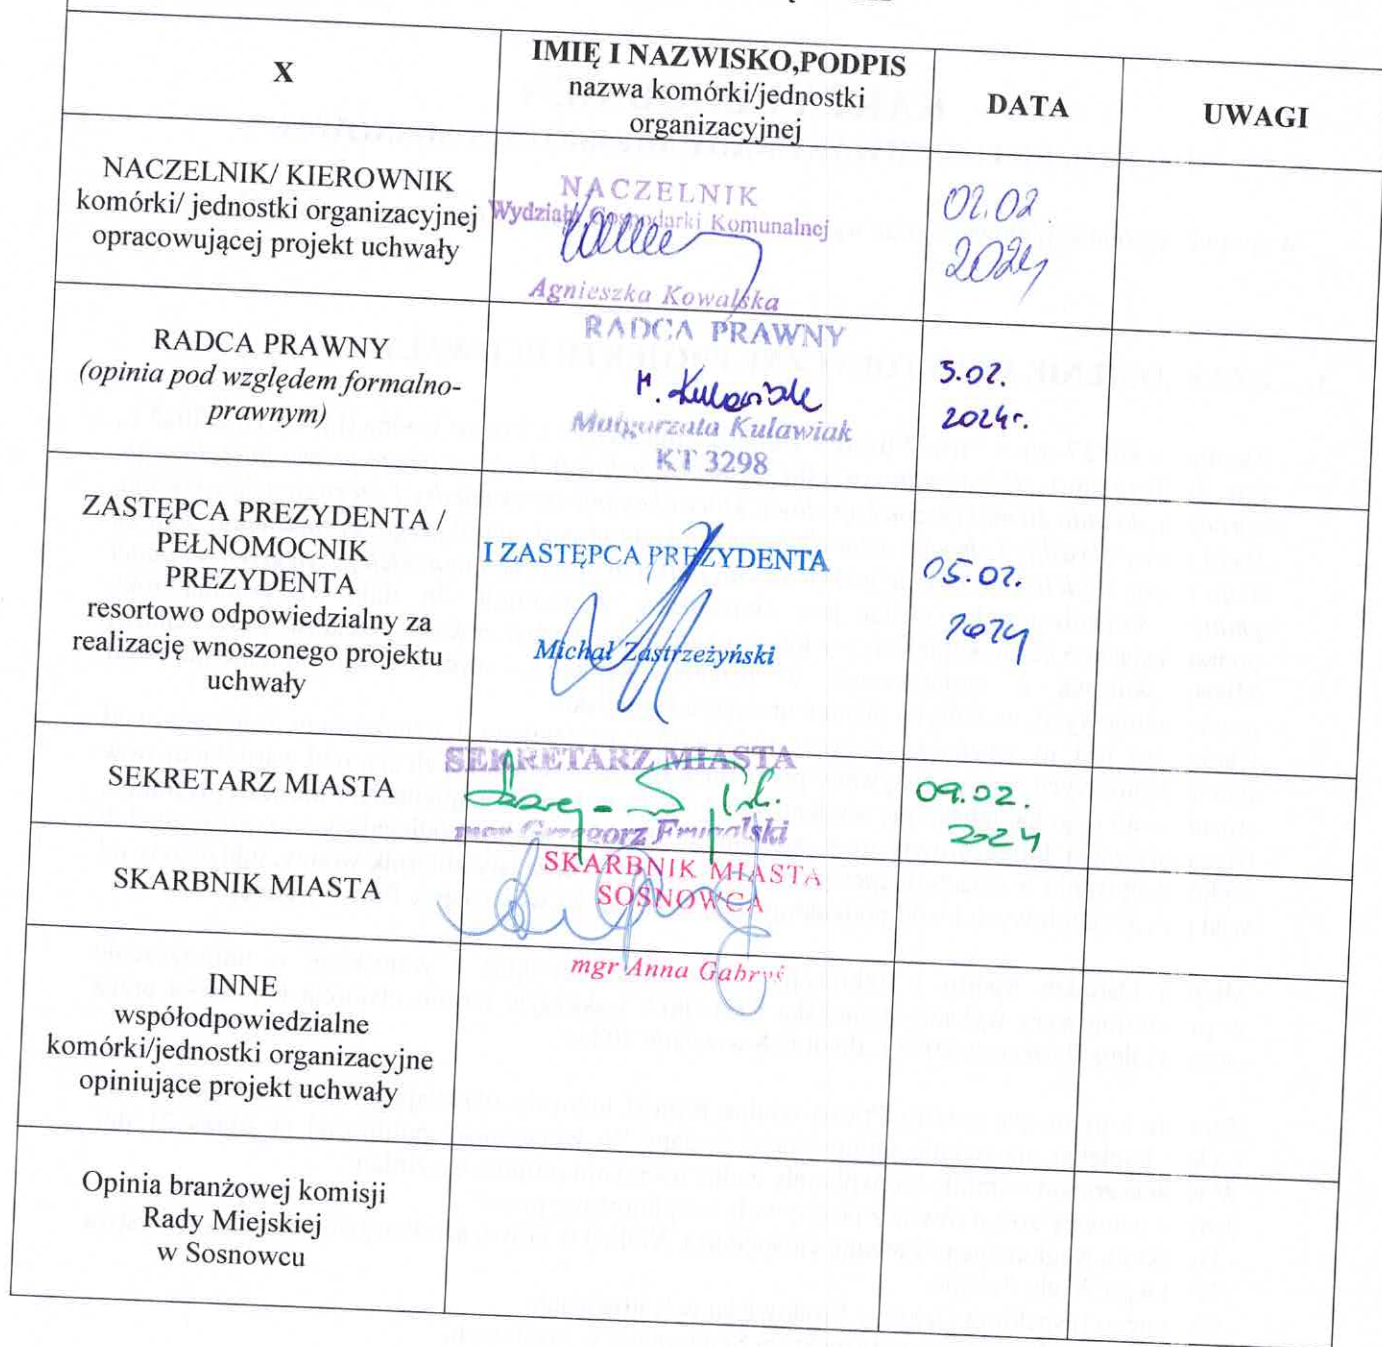 X
IMIĘ I NAZWISKO,PODPIS
nazwa komórki/jednostki
organizacyjnej
DATA
UWAGI
NACZELNIK/ KIEROWNIK
komórki/ jednostki organizacyjnej
opracowującej projekt uchwały
NACZELNIK
Wydziału Gospodarki Komunalnej
Agnieszka Kowalska
02.02.
2024
RADCA PRAWNY
(opinia pod względem formalno-
prawnym)
RADCA PRAWNY
M. Kulawiak
Małgorzata Kulawiak
KT 3298
5.02.
2024r.
ZASTĘPCA PREZYDENTA /
PEŁNOMOCNIK
PREZYDENTA
resortowo odpowiedzialny za
realizację wnoszonego projektu
uchwały
I ZASTĘPCA PREZYDENTA
Michał Zastrzeżyński
05.02.
2024
SEKRETARZ MIASTA
SEKRETARZ MIASTA
mgr Grzegorz Frugalski
09.02.
2024
SKARBNIK MIASTA
SKARBNIK MIASTA
SOSNOWCA
mgr Anna Gabryś
INNE
współodpowiedzialne
komórki/jednostki organizacyjne
opiniujące projekt uchwały
Opinia branżowej komisji
Rady Miejskiej
w Sosnowcu